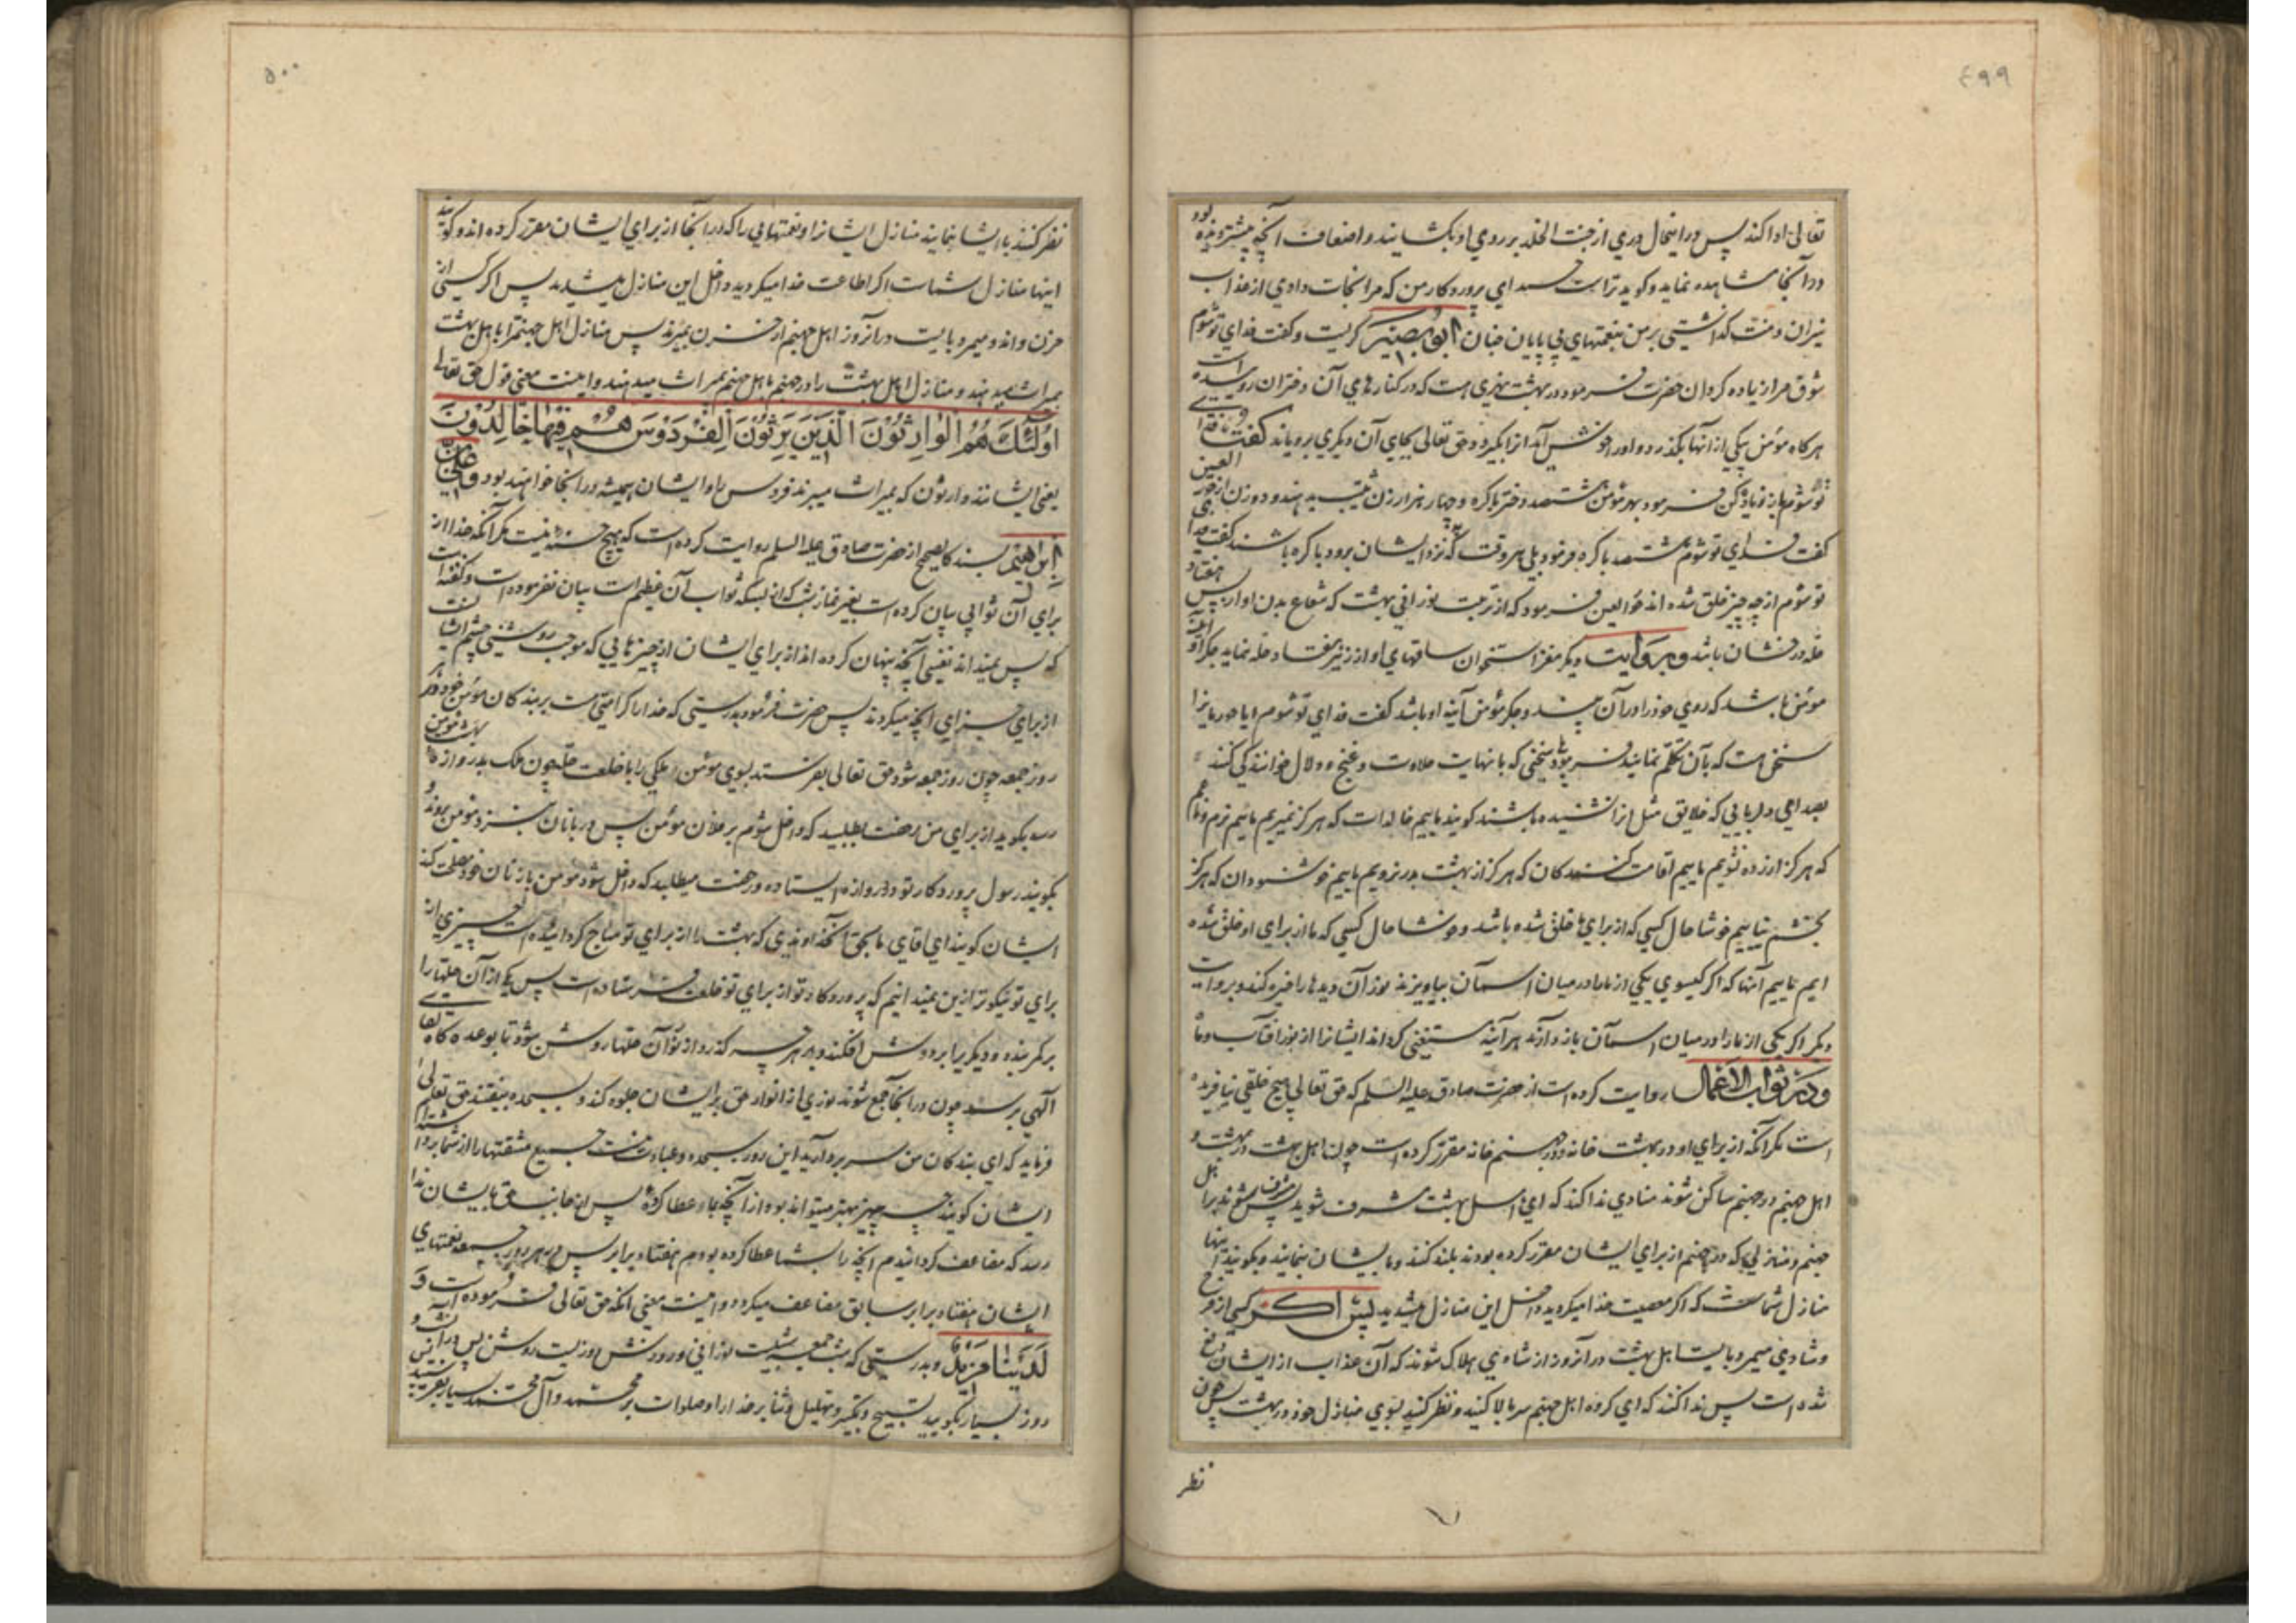 ۴۹۹
تعالی ادا کند پس در اینحال دری از جنت الخلد بر روی او بکشایند و اضعاف آنچه پیشتر دیده بود
در آنجا مشاهده نماید و کوید تراست حمد ای پروردکار من که مرا نجات دادی از عذاب
نیران و منت کذاشتی بر من بنعمتهای بی پایان جنان ابو بصیر کریست و کفت فدای تو شوم
شوق مرا زیاده کردان حضرت فرمود در بهشت نهری هست که در کنارهای آن دختران روییده است
هرکاه مؤمن بیکی از آنها بکذرد و او را خوش آید آنرا بکیرد و حق تعالی بجای آن دیکری برویاند کفت فدای
تو شوم باز زیاده کن فرمود بهر مؤمن هشتصد دختر باکره و چهار هزار زن ثیب میدهند و دو زن از حور العین
کفت فدای تو شوم هشتصد باکره فرمود بلی هر وقت که نزد ایشان برود باکره باشند کفت فدا
تو شوم از چه چیز خلق شده اند حورالعین فرمود که از تربت نورانی بهشت که شعاع بدن او از پس هفتاد
حله درخشان باشد و بروایت دیکر مغز استخوان ساقهای او از زیر هفتاد حله نماید جکر او آینه
مؤمن باشد که روی خود را در آن بیند و جکر مؤمن آینه او باشد کفت فدای تو شوم ایا حوریانرا
سخنی هست که بآن تکلم نمایند فرمود سخنی که با نهایت حلاوت و غنج و دلال خوانندکی کنند
بصدای دلربایی که خلایق مثل انرا نشنیده باشند کویند ماییم خالدات که هرکز نمیریم ماییم نرم و ناعم
که هرکز ازرده نشویم ماییم اقامت کنندکان که هرکز از بهشت بدر نرویم ماییم خوشنودان که هرکز
بخشم نیاییم خوشا حال کسی که از برای ما خلق شده باشد و خوشا حال کسی که ما از برای او خلق شده
ایم ماییم آنها که اکر کیسوی یکی از ما را در میان اسمان بیاویزند نور آن دیدها را خیره کند و بروایت
دیکر اکر یکی از ما را در میان اسمان بازدارند هر آینه مستغنی کرداند ایشانرا از نور افتاب و ماه
و در ثواب الاعمال روایت کرده است از حضرت صادق علیه السلم که حق تعالی هیچ خلقی نیافریده
است مکر آنکه از برای او در بهشت خانه و در جهنم خانه مقرر کرده است چون اهل بهشت در بهشت و
اهل جهنم در جهنم ساکن شوند منادی ندا کند که ای اهل بهشت مشرف شوید پس مشرف شوند بر اهل
جهنم و منازلی که در جهنم از برای ایشان مقرر کرده بودند بلند کنند و بایشان بنمایند و بکویند اینها
منازل شماست که اکر معصیت خدا میکردید داخل این منازل میشدید پس اکر کسی از فرح
و شادی میمرد بایست اهل بهشت در آنروز از شادی هلاک شوند که آن عذاب از ایشان دفع
شده است پس ندا کنند که ای کروه اهل جهنم سر بالا کنید و نظر کنید بسوی منازل خود در بهشت پس چون
نظر
۵۰۰
نظر کنند بایشان بنمایند منازل ایشانرا و نعمتهایی را که در آنجا از برای ایشان مقرر کرده اند و کویند
اینها منازل شماست اکر اطاعت خدا میکردید داخل این منازل میشدید پس اکر کسی از
حزن و اندوه میمرد بایست در آنروز اهل جهنم از حزن بمیرند پس منازل اهل جهنم را باهل بهشت
بمیراث میدهند و منازل اهل بهشت را در جهنم باهل جهنم بمیراث میدهند و اینست معنی قول حق تعالی
اُولٰئِکَ هُمُ الْوارِثُونَ الَّذِینَ یَرِثُونَ الْفِرْدَوْسَ هُمْ فِیها خالِدُونَ
یعنی ایشانند وارثون که بمیراث میبرند فردوس را و ایشان همیشه در آنجا خواهند بود و علی بن
ابراهیم بسند کالصحیح از حضرت صادق علیه السلم روایت کرده است که هیچ حسنه نیست مکر آنکه خدا از
برای آن ثوابی بیان کرده است بغیر نماز شب که از بسکه ثواب آن عظیم است بیان نفرموده است و کفته است
که پس نمیداند نفسی آنچه پنهان کرده اند از برای ایشان از چیزهایی که موجب روشنی چشم ایشانست
از برای جزای آنچه میکردند پس حضرت فرمود بدرستی که خدا را کرامتی هست بر بندکان مؤمن خود در هر
روز جمعه چون روز جمعه شود حق تعالی بفرستد بسوی مؤمن ملکی را با خلعت حله چون ملک بدروازه بهشت مؤمن
رسد بکوید از برای من رخصت بطلبید که داخل شوم بر فلان مؤمن پس دربانان بنزد مؤمن روند و
بکویند رسول پروردکار تو در دروازه ایستاده و رخصت میطلبد که داخل شود مؤمن با زنان خود مصلحت کند
ایشان کویند ای اقای ما بحق آنخداوندی که بهشت را از برای تو مباح کردانیده است چیزی از
برای تو نیکوتر ازین نمیدانیم که پروردکار تو از برای تو خلعت فرستاده است پس یکی از آن حلها را
بر کمر بندد و دیکریرا بر دوش افکند و بر هر چه کذرد از نور آن حلها روشن شود تا بوعده کاه لقای
آلهی برسد چون در آنجا جمع شوند نوری از انوار حق بر ایشان جلوه کند و بسجده بیفتند حق تعالی
فرماید که ای بندکان من سر بردارید این روز سجده و عبادت نیست جمیع مشقتها را از شما برداشته ام
ایشان کویند چه چیز بهتر میتواند بود از آنچه بما عطا کرده پس از جانب حق بایشان ندا
رسد که مضاعف کردانیدم آنچه را بشما عطا کرده بودم هفتاد برابر پس در هر روز جمعه نعمتهای
ایشان هفتاد برابر سابق مضاعف میکردد و اینست معنی آنکه حق تعالی فرموده است وَ
لَدَیْنا مَزِیدٌ و بدرستی که شب جمعه شبیست نورانی و روزش روزیست روشن پس در آن شب و
روز بسیار بکویید تسبیح و تکبیر و تهلیل و ثنا بر خدا را و صلوات بر محمد و آل محمد بسیار بفرستید